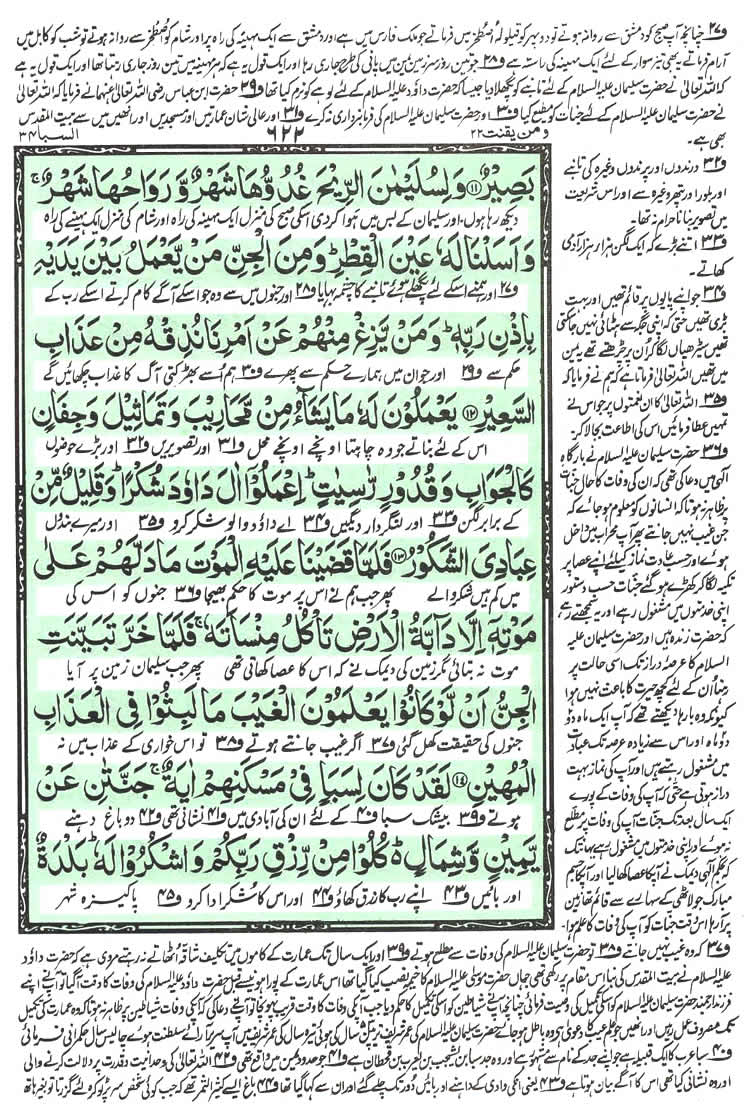 و۲۷ چنانچہ آپ صبح کو دمشق سے روانہ ہوتے تو دوپہر کو قیلولہ اُصطخر میں فرماتے جو ملک فارس میں ہے اور دمشق سے ایک مہینہ کی راہ پر اور شام کو اُصطخر سے روانہ ہوتے تو شب کو کابل میں
آرام فرماتے یہ بھی تیز سوار کے لئے ایک مہینہ کی راستہ ہے و۲۸ جو تین روز سرزمین یمن میں پانی کی طرح جاری رہا اور ایک قول یہ ہے کہ ہر مہینہ میں تین روز جاری رہتا تھا اور ایک قول یہ ہے
کہ اللہ تعالیٰ نے حضرت سلیمان علیہ السلام کے لئے تانبے کو پگھلا دیا جیسا کہ حضرت داؤد علیہ السلام کے لئے لوہے کو نرم کیا تھا و۲۹ حضرت ابن عباس رضی اللہ تعالیٰ عنہما نے فرمایا کہ اللہ تعالیٰ
نے حضرت سلیمان علیہ السلام کے لئے جنات کو مطیع کیا و۳۰ اور حضرت سلیمان علیہ السلام کی فرمانبرداری نہ کرے و۳۱ اور عالی شان عمارتیں اور مسجدیں اور انھیں میں سے بیت المقدس
بھی ہے۔
ومن یقنت ۲۲
۶۲۲
السبا ۳۴
بَصِيْرٌ ﴿۱۱﴾ وَلِسُلَيْمٰنَ الرِّيْحَ غُدُوُّهَا شَهْرٌ وَّرَوَاحُهَا شَهْرٌ ۚ
دیکھ رہا ہوں، اور سلیمان کے بس میں ہوا کر دی اسکی صبح کی منزل ایک مہینہ کی راہ اور شام کی منزل ایک مہینے کی راہ
وَاَسَلْنَا لَهٗ عَيْنَ الْقِطْرِ ؕ وَمِنَ الْجِنِّ مَنْ يَّعْمَلُ بَيْنَ يَدَيْهِ
و۲۷ اور ہم نے اسکے لئے پگھلے ہوئے تانبے کا چشمہ بہایا و۲۸ اور جنوں میں سے وہ جو اسکے آگے کام کرتے اسکے رب کے
بِاِذْنِ رَبِّهٖ ؕ وَمَنْ يَّزِغْ مِنْهُمْ عَنْ اَمْرِنَا نُذِقْهُ مِنْ عَذَابِ
حکم سے و۲۹ اور جو ان میں ہمارے حکم سے پھرے و۳۰ ہم اُسے بھڑکتی آگ کا عذاب چکھائیں گے
السَّعِيْرِ ﴿۱۲﴾ يَعْمَلُوْنَ لَهٗ مَا يَشَآءُ مِنْ مَّحَارِيْبَ وَتَمَاثِيْلَ وَجِفَانٍ
اس کے لئے بناتے جو وہ چاہتا اونچے اونچے محل و۳۱ اور تصویریں و۳۲ اور بڑے حوضوں
كَالْجَوَابِ وَقُدُوْرٍ رّٰسِيٰتٍ ؕ اِعْمَلُوْٓا اٰلَ دَاوٗدَ شُكْرًا ؕ وَقَلِيْلٌ مِّنْ
کے برابر لگن و۳۳ اور لنگر دار دیگیں و۳۴ اے داؤد والو شکر کرو و۳۵ اور میرے بندوں
عِبَادِيَ الشَّكُوْرُ ﴿۱۳﴾ فَلَمَّا قَضَيْنَا عَلَيْهِ الْمَوْتَ مَا دَلَّهُمْ عَلٰى
میں کم ہیں شکر والے پھر جب ہم نے اس پر موت کا حکم بھیجا و۳۶ جنوں کو اس کی
مَوْتِهٖٓ اِلَّا دَآبَّةُ الْاَرْضِ تَاْكُلُ مِنْسَاَتَهٗ ۚ فَلَمَّا خَرَّ تَبَيَّنَتِ
موت نہ بتائی مگر زمین کی دیمک نے کہ اس کا عصا کھاتی تھی پھر جب سلیمان زمین پر آیا
الْجِنُّ اَنْ لَّوْ كَانُوْا يَعْلَمُوْنَ الْغَيْبَ مَا لَبِثُوْا فِى الْعَذَابِ
جنوں کی حقیقت کھل گئی و۳۷ اگر غیب جانتے ہوتے و۳۸ تو اس خواری کے عذاب میں نہ
الْمُهِيْنِ ﴿۱۴﴾ لَقَدْ كَانَ لِسَبَاٍ فِىْ مَسْكَنِهِمْ اٰيَةٌ ۚ جَنَّتٰنِ عَنْ
ہوتے و۳۹ بیشک سبا و۴۰ کے لئے ان کی آبادی میں و۴۱ نشانی تھی و۴۲ دو باغ دہنے
يَّمِيْنٍ وَّشِمَالٍ ؕ كُلُوْا مِنْ رِّزْقِ رَبِّكُمْ وَاشْكُرُوْا لَهٗ ؕ بَلْدَةٌ
اور بائیں و۴۳ اپنے رب کا رزق کھاؤ و۴۴ اور اس کا شکر ادا کرو و۴۵ پاکیزہ شہر
و۳۲ درندوں اور پرندوں وغیرہ کی تانبے
اور بلور اور پتھر وغیرہ سے اور اس شریعت
میں تصویر بنانا حرام نہ تھا۔
و۳۳ اتنے بڑے کہ ایک لگن ہزار ہزار آدمی
کھاتے۔
و۳۴ جو اپنے پایوں پر قائم تھیں اور بہت
بڑی تھیں حتیٰ کہ اپنی جگہ سے ہٹائی نہیں جا سکتی
تھیں سیڑھیاں لگا کر اُن پر چڑھتے تھے یہ یمن
میں تھیں اللہ تعالیٰ فرماتا ہے کہ ہم نے فرمایا کہ
و۳۵ اللہ تعالیٰ کا ان نعمتوں پر جو اس نے
تمہیں عطا فرمائیں اس کی اطاعت بجا لاکر۔
و۳۶ حضرت سلیمان علیہ السلام نے بارگاہ
الٰہی میں دعا کی تھی کہ ان کی وفات کا حال جنّات
پر ظاہر نہ ہو تاکہ انسانوں کو معلوم ہو جائے کہ
جن غیب نہیں جانتے پھر آپ محراب میں داخل
ہوئے اور حسب عادت نماز کیلئے اپنے عصا پر
تکیہ لگا کر کھڑے ہو گئے جنّات حسب دستور
اپنی خدمتوں میں مشغول رہے اور یہ سمجھتے رہے
کہ حضرت زندہ ہیں اور حضرت سلیمان علیہ
السلام کا عرصۂ دراز تک اسی حالت پر
رہنا اُن کے لئے کچھ حیرت کا باعث نہیں ہوا
کیونکہ وہ بارہا دیکھتے تھے کہ آپ ایک ماہ دو
دو ماہ اور اس سے زیادہ عرصہ تک عبادت
میں مشغول رہتے ہیں اور آپ کی نماز بہت
دراز ہوتی ہے حتیٰ کہ آپ کی وفات کے پورے
ایک سال بعد تک جنّات آپ کی وفات پر مطلع
نہ ہوئے اور اپنی خدمتوں میں مشغول رہے یہاں تک
کہ بحکم الٰہی دیمک نے آپ کا عصا کھا لیا اور آپ کا جسم
مبارک جو لاٹھی کے سہارے سے قائم تھا زمین
پر آ رہا اس وقت جنّات کو آپ کی وفات کا علم ہوا۔
و۳۷ کہ وہ غیب نہیں جانتے و۳۸ تو حضرت سلیمان علیہ السلام کی وفات سے مطلع ہوتے و۳۹ اور ایک سال تک عمارت کے کاموں میں تکلیف شاقہ اٹھاتے نہ رہتے مروی ہے کہ حضرت داؤد
علیہ السلام نے بیت المقدس کی بنا اس مقام پر رکھی تھی جہاں حضرت موسیٰ علیہ السلام کا خیمہ نصب کیا گیا تھا اس عمارت کے پورا ہونے سے قبل حضرت داؤد علیہ السلام کی وفات کا وقت آگیا تو آپنے اپنے
فرزند ارجمند حضرت سلیمان علیہ السلام کو اسکی تکمیل کی وصیت فرمائی چنانچہ آپنے شیاطین کو اسکی تکمیل کا حکم دیا جب آپ کی وفات کا وقت قریب پہونچا تو آپنے دعا کی کہ آپ کی وفات شیاطین پر ظاہر نہ ہو تاکہ وہ عمارت کی تکمیل
تک مصروف عمل رہیں اور انھیں جو علم غیب کا دعویٰ ہے وہ باطل ہو جائے حضرت سلیمان علیہ السلام کی عمر شریف ترپن سال کی ہوئی تیرہ سال کی عمر شریف میں آپ سریر آرائے سلطنت ہوئے چالیس سال حکمرانی فرمائی
و۴۰ سبا عرب کا ایک قبیلہ ہے جو اپنے جد کے نام سے مشہور ہے اور وہ جد سبا بن یشجب بن یعرب بن قحطان ہے و۴۱ جو حدود یمن میں واقع تھی و۴۲ اللہ تعالیٰ کی وحدانیت و قدرت پر دلالت کرنے والی
اور وہ نشانی کیا تھی اس کا آگے بیان ہوتا ہے و۴۳ یعنی انکی وادی کے داہنے اور بائیں دور تک چلے گئے اور ان سے کہا گیا تھا و۴۴ باغ ایسے کثیر الثمر تھے کہ جب کوئی شخص سر پر ٹوکرہ لئے گزرتا تو بغیر ہاتھ